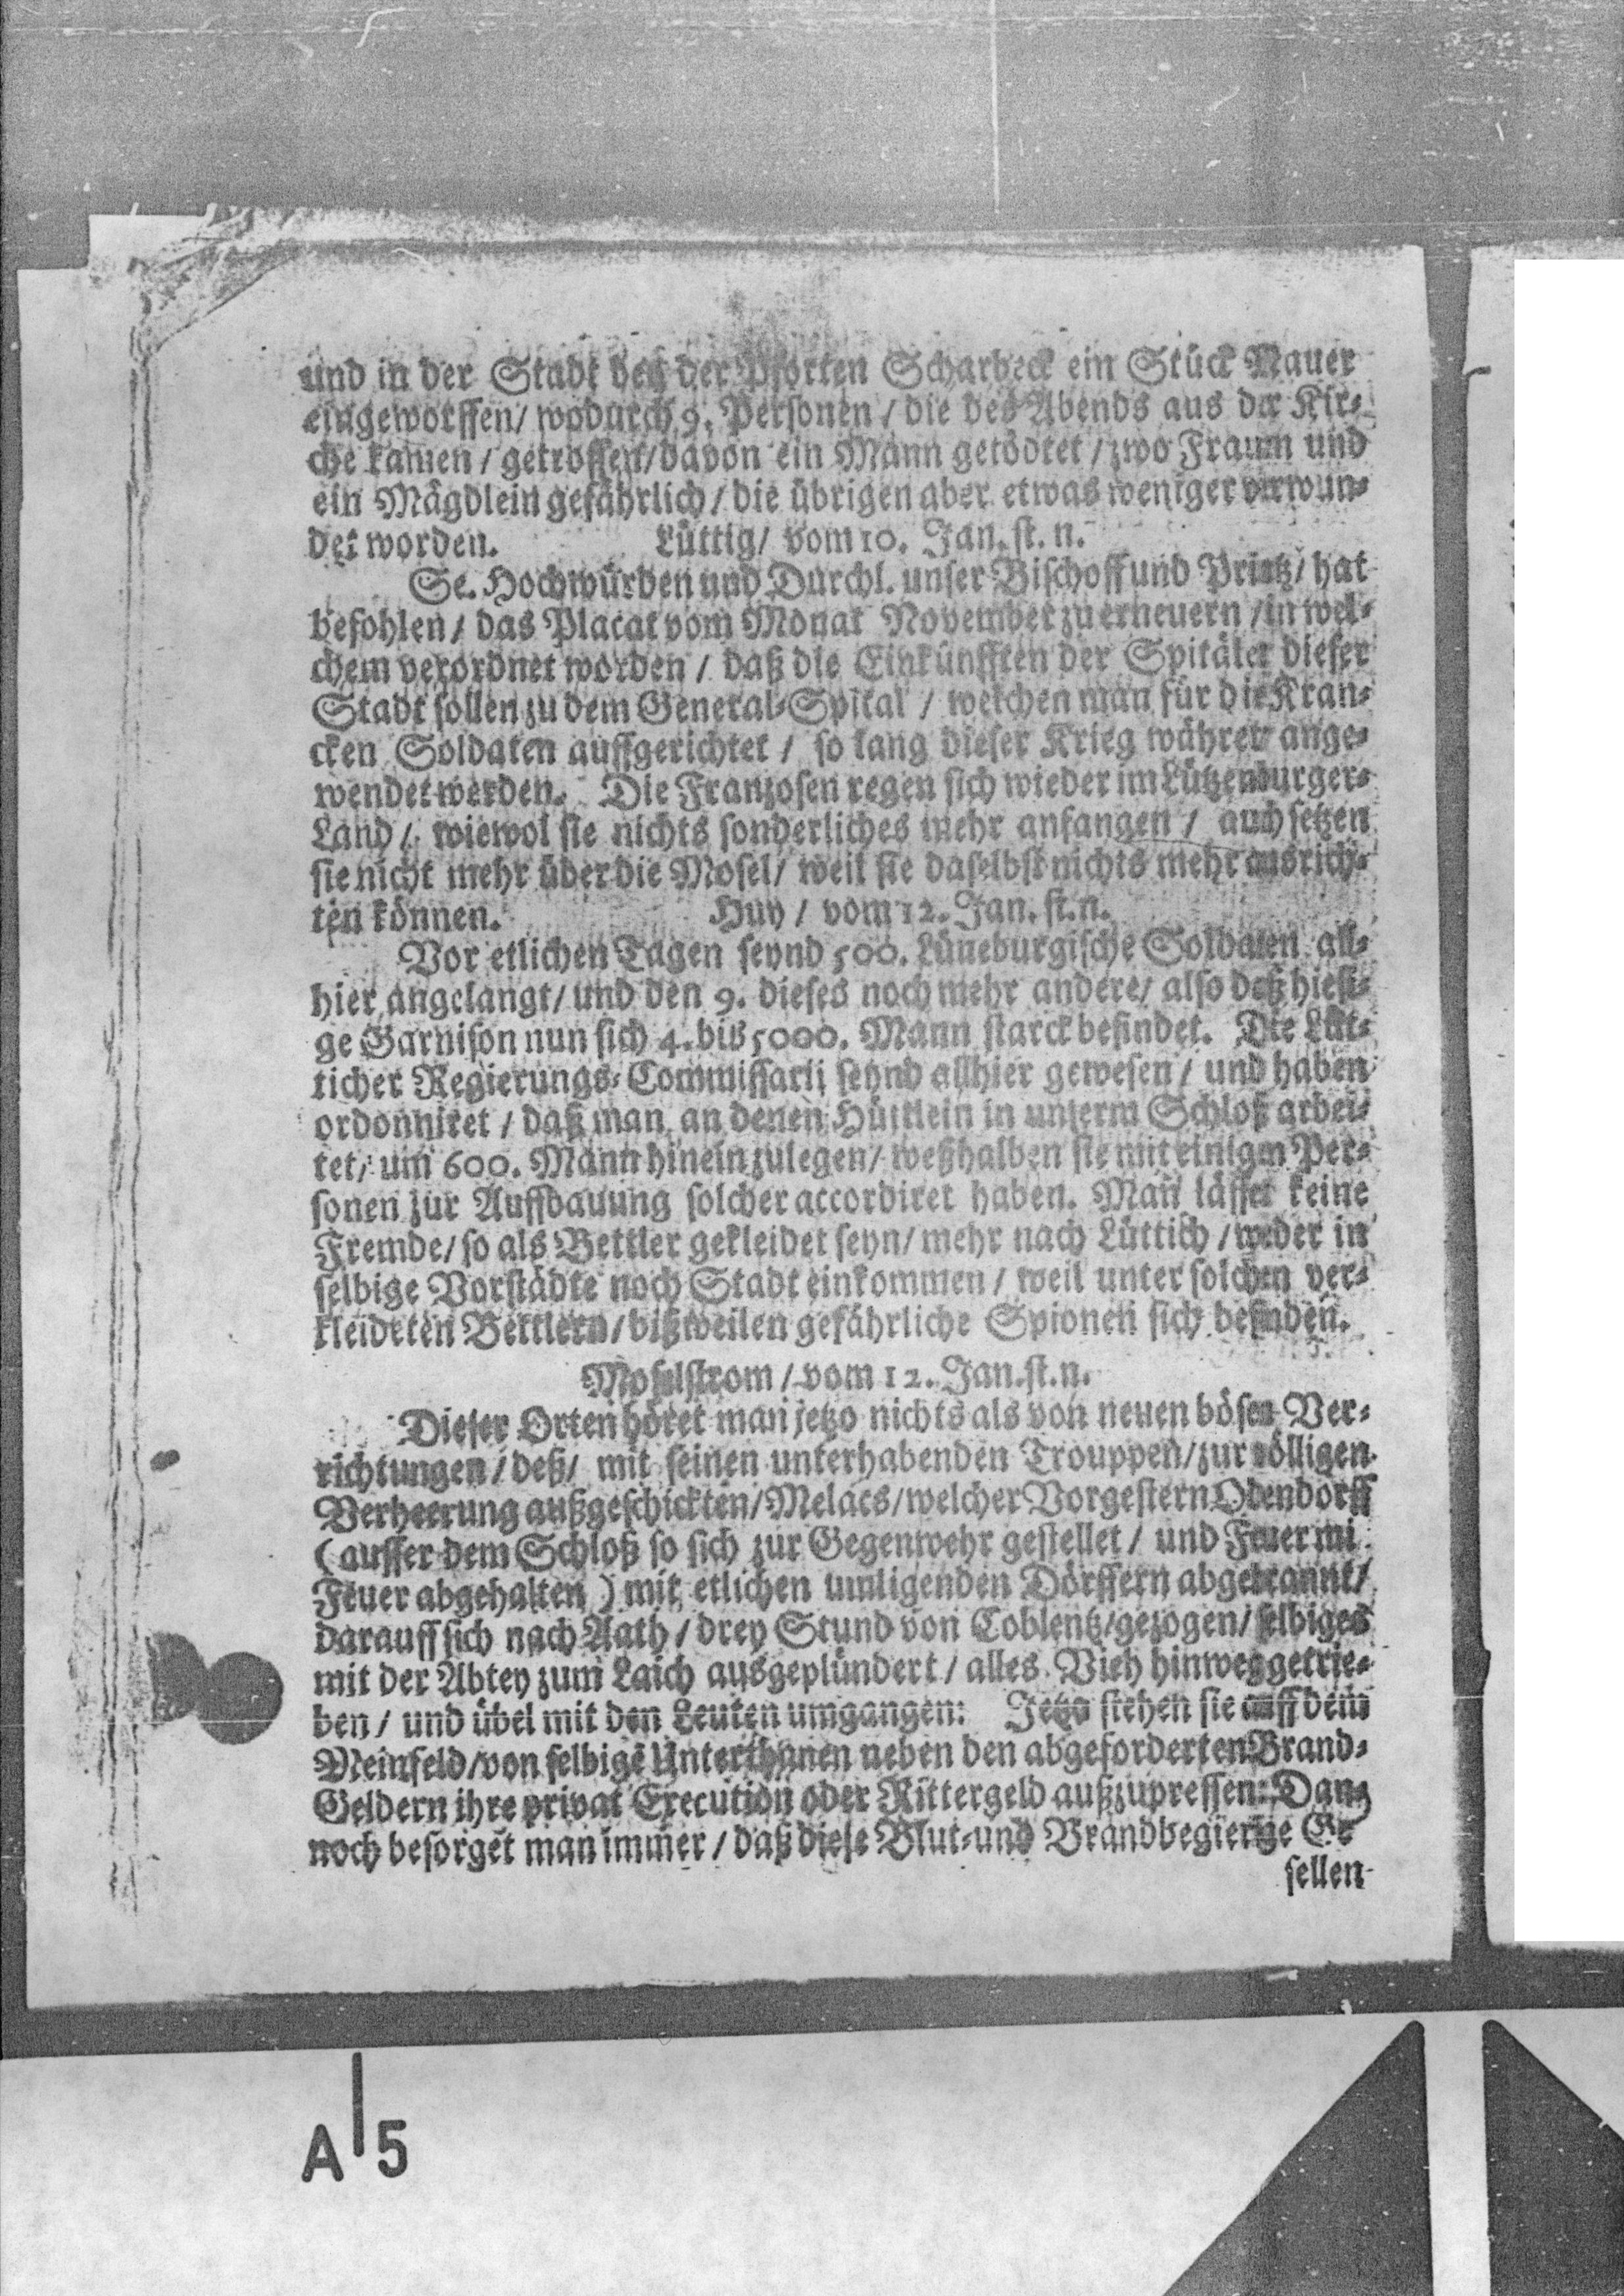 und in der Stadt bey der Pforten Scharbeck ein Stück Mauer
eingeworffen/ wodurch 9. Personen / die des Abends aus der Kir-
che kamen / getroffen/davon ein Mann getödtet / zwo Frauen und
ein Mägdlein gefährlich / die übrigen aber etwas weniger verwun-
det worden. Lüttig/ vom 10. Jan. st. n.
Se. Hochwürden und Durchl. unser Bischoff und Printz/ hat
befohlen / das Placat vom Monat November zu erneuern /in wel-
chem verordnet worden / daß die Einkünfften der Spitäler dieser
Stadt sollen zu dem General-Spital / welchen man für die Kran-
cken Soldaten auffgerichtet / so lang dieser Krieg währet/ ange-
wendet werden. Die Franzosen regen sich wieder im Lützenburger-
Land / wiewol sie nichts sonderliches mehr anfangen / auch setzen
sie nicht mehr über die Mosel/ weil sie daselbst nichts mehr ausrich-
ten können. Huy / vom 12. Jan. st. n.
Vor etlichen Tagen seynd 500. Lüneburgische Soldaten all-
hier angelangt/ und den 9. dieses noch mehr andere/ also daß hiesi-
ge Garnison nun sich 4. biß 5000. Mann starck befindet. Die Lüt-
ticher Regierungs-Commissarii seynd allhier gewesen / und haben
ordonniret / daß man an denen Hüttlein in unserm Schloß arbei-
tet/ um 600. Mann hinein zulegen/ weßhalben sie mit einigen Per-
sonen zur Auffbauung solcher accordiret haben. Mañ lässet keine
Fremde/ so als Bettler gekleidet seyn/ mehr nach Lüttich / weder in
selbige Vorstädte noch Stadt einkommen / weil unter solchen ver-
kleideten Bettlern/ bißweilen gefährliche Spionen sich befinden.
Moselstrom / vom 12. Jan. st. n.
Dieser Orten höret man jetzo nichts als von neuen bösen Ver-
richtungen / deß/ mit seinen unterhabenden Trouppen/zur völligen
Verheerung außgeschickten/Melacs/welcher Vorgestern Odendorff
(ausser dem Schloß so sich zur Gegenwehr gestellet / und Feuer mi
Feuer abgehalten ) mit etlichen umligenden Dörffern abgebrannt/
darauff sich nach Aath / drey Stund von Coblentz/gezogen/ selbiges
mit der Abtey zum Laich ausgeplündert / alles Vieh hinweg getrie-
ben / und übel mit den Leuten umgangen: Jetzo stehen sie auff dem
Meinfeld/von selbigē Unterthanen neben den abgeforderten Brand-
Geldern ihre privat Execution oder Rittergeld außzupressen: Dan-
noch besorget man immer / daß diese Blut-und Brandbegierige Ge
sellen-
A 5